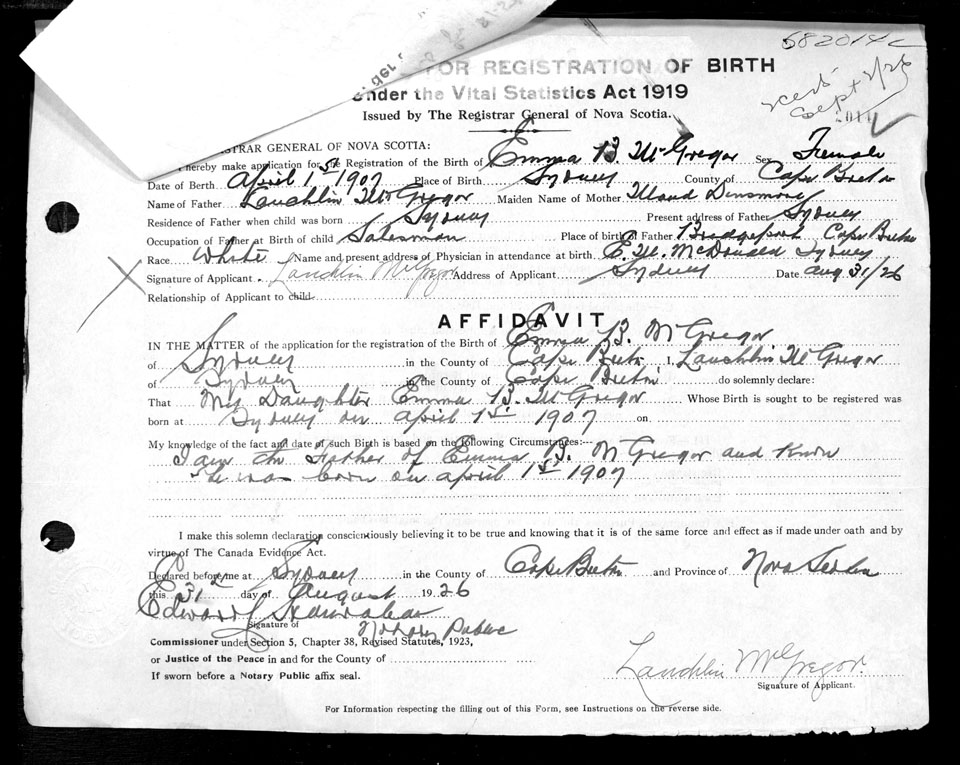 682014c
FOR REGISTRATION OF BIRTH
Under the Vital Statistics Act 1919
Recd Sept 2/26
Issued by The Registrar General of Nova Scotia.
REGISTRAR GENERAL OF NOVA SCOTIA:
hereby make application for the Registration of the Birth of Emma B. McGregor Sex Female
Date of Birth April 1st 1907 Place of Birth Sydney County of Cape Breton
Name of Father Lauchlin McGregor Maiden Name of Mother Maud Densmore
Residence of Father when child was born Sydney Present address of Father Sydney
Occupation of Father at Birth of child Salesman Place of birth of Father Bridgeport Cape Breton
Race White Name and present address of Physician in attendance at birth E. M. McDonald Sydney
Signature of Applicant Lauchlin McGregor Address of Applicant Sydney Date Aug 31/26
Relationship of Applicant to child
AFFIDAVIT
IN THE MATTER of the application for the registration of the Birth of Emma B. McGregor
of Sydney in the County of Cape Breton I, Lauchlin McGregor
of Sydney in the County of Cape Breton do solemnly declare:
That My Daughter Emma B. McGregor Whose Birth is sought to be registered was
born at Sydney on April 1st 1907 on
My knowledge of the fact and date of such Birth is based on the following Circumstances:--
I am the Father of Emma B. McGregor and know
he was born on April 1st 1907
I make this solemn declaration conscientiously believing it to be true and knowing that it is of the same force and effect as if made under oath and by
virtue of The Canada Evidence Act.
Declared before me at Sydney in the County of Cape Breton and Province of Nova Scotia
this 31st day of August 1926
Edward
Signature of
Notary Public
Commissioner under Section 5, Chapter 38, Revised Statutes, 1923,
or Justice of the Peace in and for the County of
If sworn before a Notary Public affix seal.
Lauchlin McGregor
Signature of Applicant.
For Information respecting the filling out of this Form, see Instructions on the reverse side.